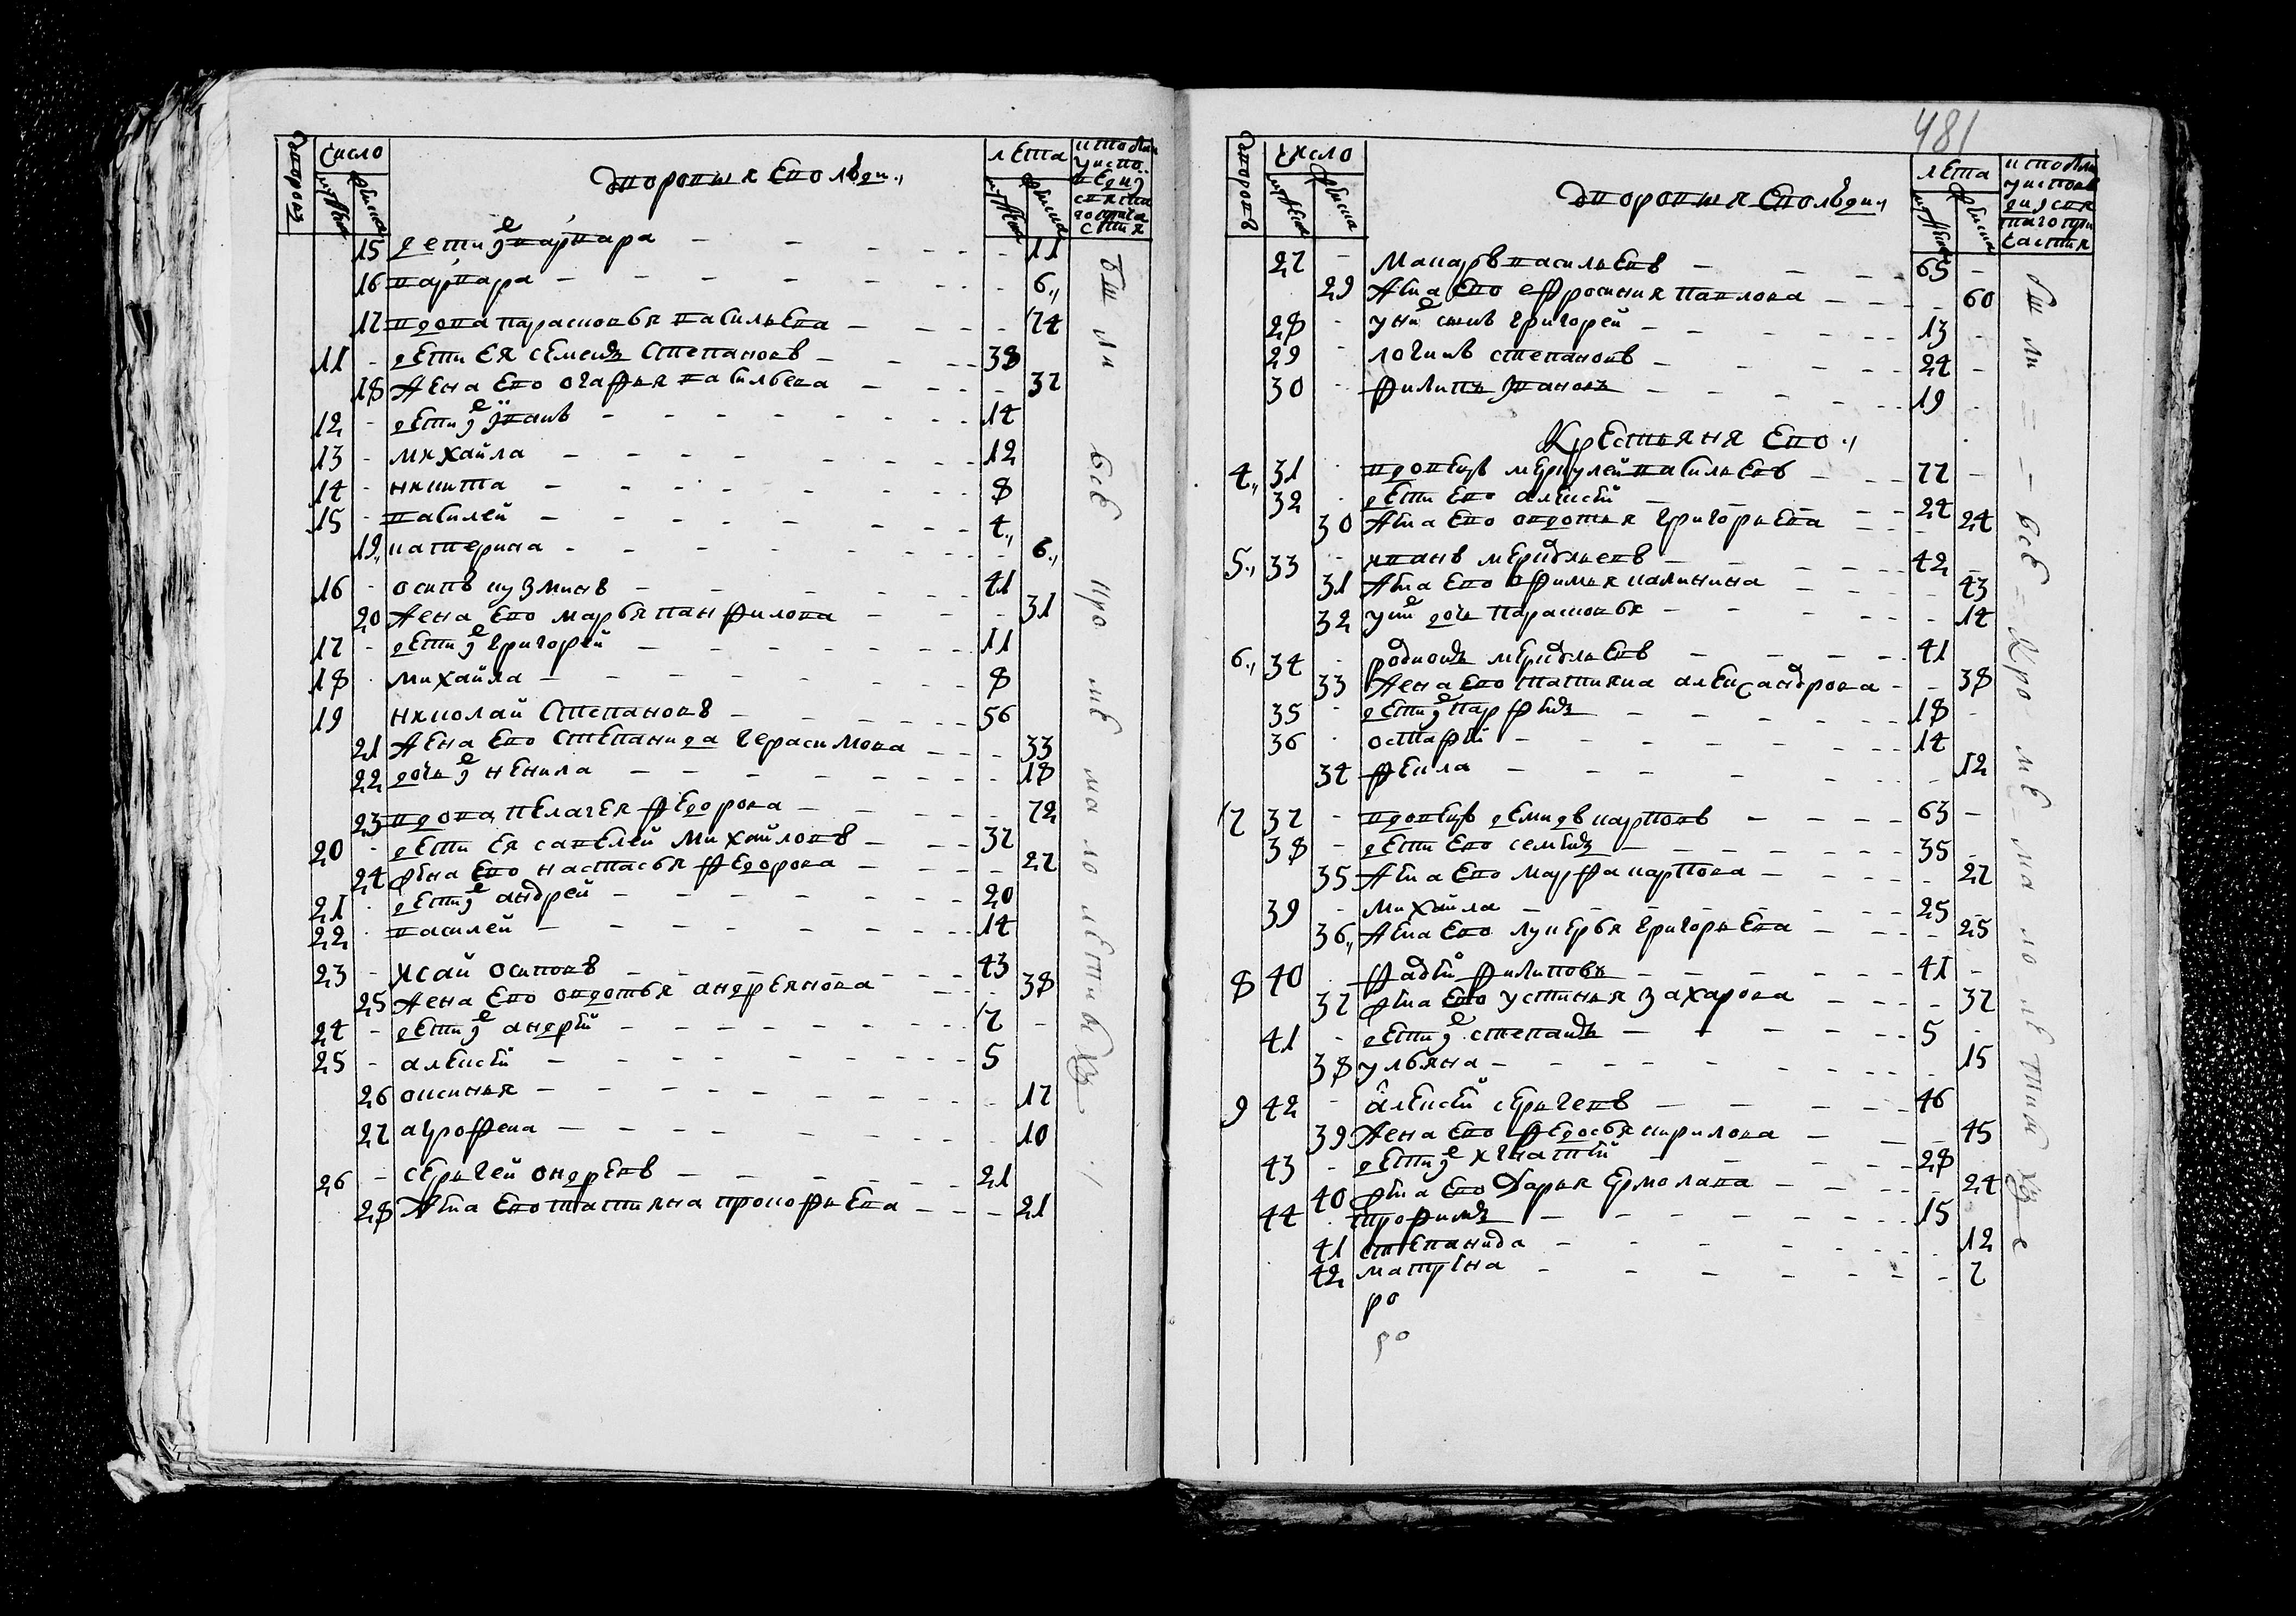 дворовъ
число
мужска
женска
дворовыя Ево люди.,
лѣта
мужска
женска
15 дети ꙋ е варвара - - - - 11
16 варвара - - - - 6.,
17 вдова парасковья василева - - - 74
11 - дети ея семенъ степановъ - - - 38
18 жена ево огафья васильева - - - 37
12 - дети ꙋ е иванъ - - - 14
13 - михайла - - - 12
14 - никита - - - 8
15 - василей - - - 4.,
19., катерина - - - 6.,
16 - осипъ кузминъ - - - 41
20 жена ево марья панфилова - - 31
17 - дети ꙋ е григорей - - - 11
18 - михайла - - - 8
19 николай степановъ - - - 56
21 жена ево степанида герасимова - - - 33
22 дочь ꙋ е ненила - - - 18
23 вдова пелагея федорова - - - 72
20 - дети ея савелей михайловъ - - - 37
24 жена ево настасья федорова - - - 27
21 - дети ꙋ е андрей - - - 20
22 - василей - - - 14
23 - исай осиповъ - - - 43
25 жена ево овдотья андреянова - - 38
24 - дети ꙋ е андрей - - - 7 -
25 - алексей - - - 5
26 оксинья - - - 17
27 агрофена - - - 10
26 - сергей ондреевъ - - - 21
28 жена ево татияна прокофьева - - - 21
бы ли всѣ кро мѣ ма ло лѣтныхъ
481
дворовъ
число
мужска
женска
дворовыя Ево люди
лѣта
мужска
женска
27 - макаръ васильевъ - - - 65 -
29 жена ево ефросинья павлова - - - 60
28 - у нихъ сынъ григорей - - - 13 -
29 - логинъ степановъ - - - 24 -
30 - филипъ ивановъ - - - 19 -
крестьяня Ево.,
4., 31 - вдовецъ меркулей васильевъ - - 77 -
32 - дети ево алексей - - - 24
30 жена ево овдотья григорьева - - - 24
5., 33 - иванъ меркульевъ - - - 42 -
31 жена ево офимья калинина - - - 43
32 у нихъ дочь парасковья - - - 14
6., 34 - родионъ меркульевъ - - - 41
33 жена ево татияна александрова - - 38
35 - дети ꙋ е парфенъ - - - 18 -
36 - остафей - - - 14
34 фекла - - - 12
7 37 - вдовецъ демидъ карповъ - - - 63 -
38 - дети ево семенъ - - - 35 -
35 жена ево марфа карпова - - - 27
39 - михайла - - - 25 -
36., жена ево лукерья григорьева - - - 25
8 40 - фадей филиповъ - - - 41 -
37 жена ево устинья захарова - - - 37
41 - дети ꙋ е степанъ - - - 5 -
38 ульяна - - - 15
9 42 - алексей сергеевъ - - - 46
39 жена ево федосья кирилова - - 45
43 - дети ꙋ е игнатей - - - 28 -
40 жена ево дарья ермолаева - - - 24
44 - трофимъ - - - 15
41 степанида - - - 12
42 матрена - - - 7
ро
ро
бы ли - - - всѣ - кро мѣ - ма ло лѣтныхъ